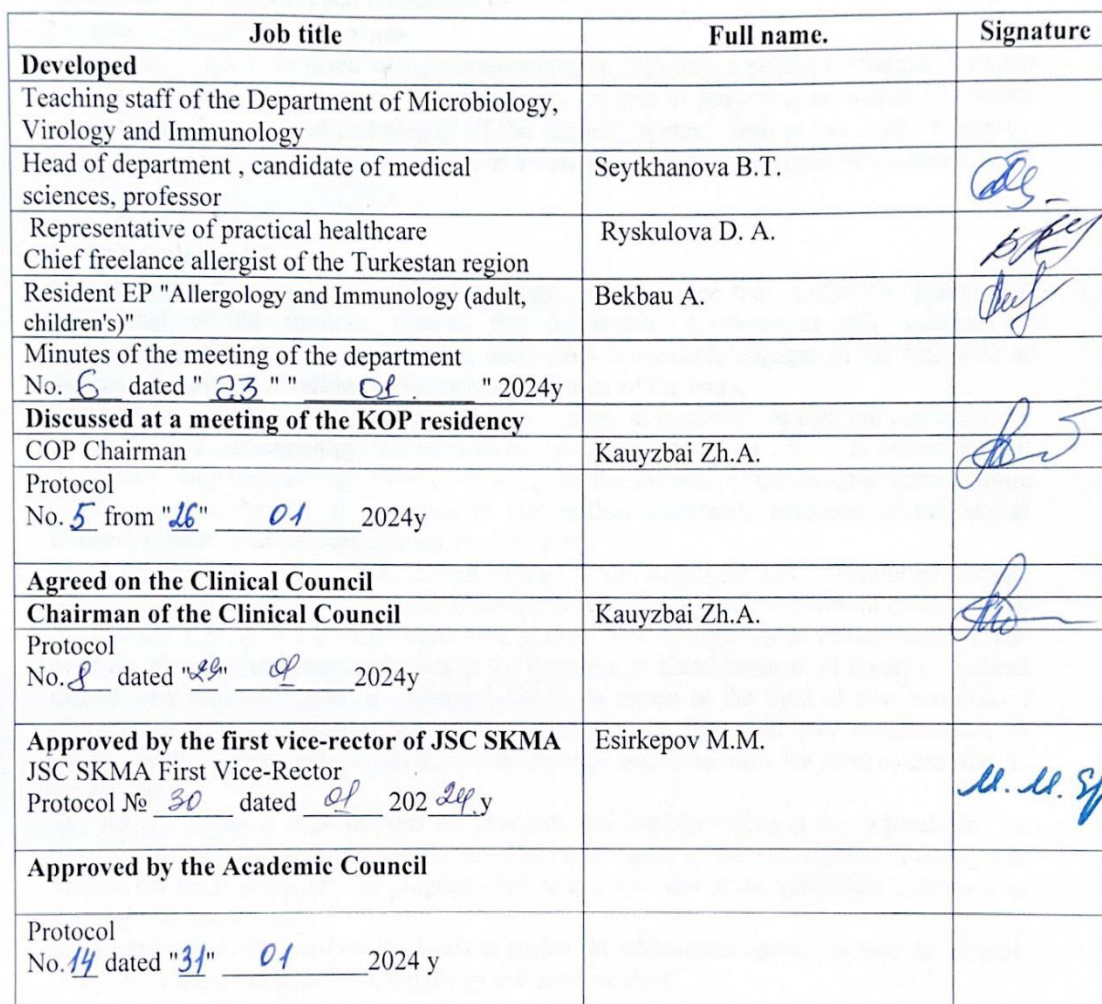 Job title Full name. Signature
Developed
Teaching staff of the Department of Microbiology,
Virology and Immunology
Head of department , candidate of medical Seytkhanova B.T.
sciences, professor
Representative of practical healthcare Ryskulova D. A.
Chief freelance allergist of the Turkestan region
Resident EP "Allergology and Immunology (adult, Bekbau A.
children's)"
Minutes of the meeting of the department
No. 6 dated " 23 " " 01. " 2024y
Discussed at a meeting of the KOP residency
COP Chairman Kauyzbai Zh.A.
Protocol
No. 5 from "26" 01 2024y
Agreed on the Clinical Council
Chairman of the Clinical Council Kauyzbai Zh.A.
Protocol
No. dated 2024y
Approved by the first vice-rector of JSC SKMA Esirkepov M.M.
JSC SKMA First Vice-Rector
Protocol № 30 dated 01 202 24 y
Approved by the Academic Council
Protocol
No. 14 dated "31" 01 2024 y